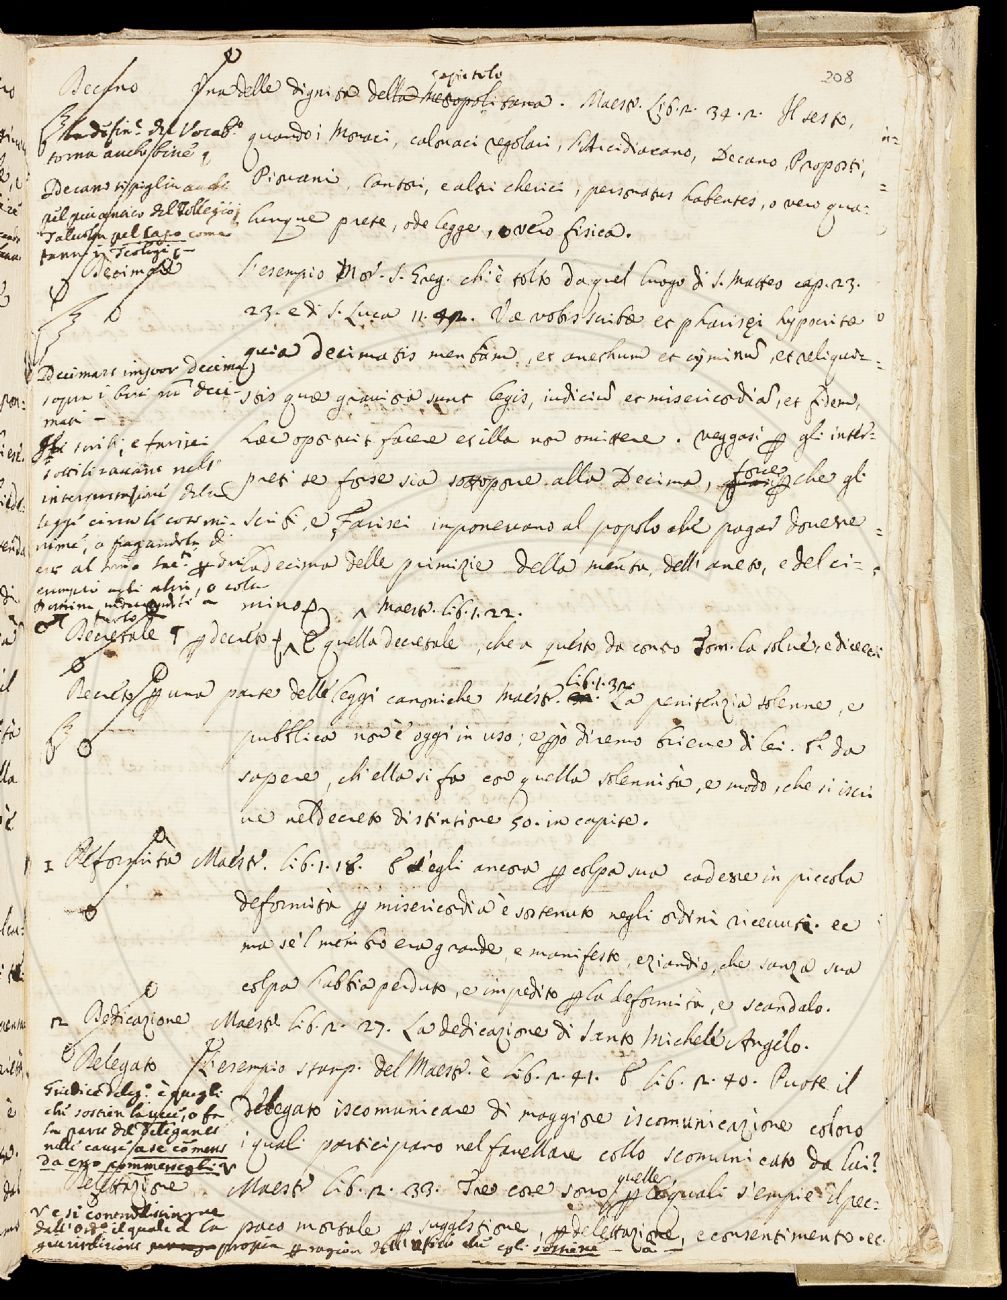 208
capitolo
Decano Una delle dignità della Metropolitana. Maestr. Lib. 2. 34. 2. Il sesto,
quando i Monaci, calonaci regolari, l'Arcidiacano, Decano, Proposti,
Piovani, Cantori, e altri cherici, personatus habentes, o vero qua-
lunque prete, ode legge, o vero fisica.
la difin.e del Vocab.o
torna anche bene
Decano si piglia anche
nel più antico del Collegio,
Talvolta pel Capo come
Teologi
Decima
L'esempio Mor. S. Greg. ch'è tolto da quel luogo di S. Matteo cap. 23.
23. e di S. Luca 11. 42. Væ vobis scribæ et pharisęi hypocritæ
quia decimatis mentam, et anethum et cyminũ, et reliqui-
stis quæ graviora sunt legis, iudiciũ et misericordiã, et fidem,
hæc oportuit facere et illa non omittere. Veggasi gli inter-
preti se forse sia sottoporre alla Decima, forse che gli
Scribi, e Farisei imponevano al popolo che pagar dovesse
la decima delle primizie della menta, dell'aneto, e del ci-
mino
Decimare imporre decima
sopra i beni nõ deci-
mati
Gli scribi, e farisei
sottilizzavano nelle
interpretazioni delle
leggi circa le cose mi-
nime, o pagandole
Maestr. lib. 1. 22.
Decretale decreto E quella decretale, che a questo da conto Tom. la solve, e dice
Decreto una parte delle leggi canoniche Maestr. lib. 1. 32. La penitenzia solenne, e
pubblica non è oggi in uso; e però diremo brieve di lei. E da
sapere, ch'ella si fa con quella solennità, e modo, che si iscri
ve nel decreto distintione 50. in capite.
1 Deformità Maestr. lib. 1. 18. E s'egli ancora per colpa sua cadesse in piccola
deformità per misericordia è sostenuto negli ordini ricevuti. ec
ma se 'l membro era grande e manifesto, eziandio, che sanza sua
colpa l'abbia perduto, e impedito per la deformità, e scandalo.
2 Dedicazione Maestr. lib. 2. 27. La dedicazione di Santo Michele Angelo.
Delegato L'esempio stamp. del Maestr. è lib. 2. 41. E lib. 2. 40. Puote il
delegato iscomunicare di maggiore iscomunicazione coloro
i quali participano nel favellare collo scomunicato da lui?
Giudice deleg.o è quegli
che sostien la veci, o fa
le parti del Delegante
nelle cause a se comesse
da esso
Dilettazione Maestr. lib. 2. 33. Tre cose sono per le quali s'empie il pec-
quelle
cato mortale per suggestione, per dilettazione, e consentimento. ec
e si contradistingue
dall'Ord.o il quale à la
giurisdizione propria per ragion dell'ufizio che egli sostiene